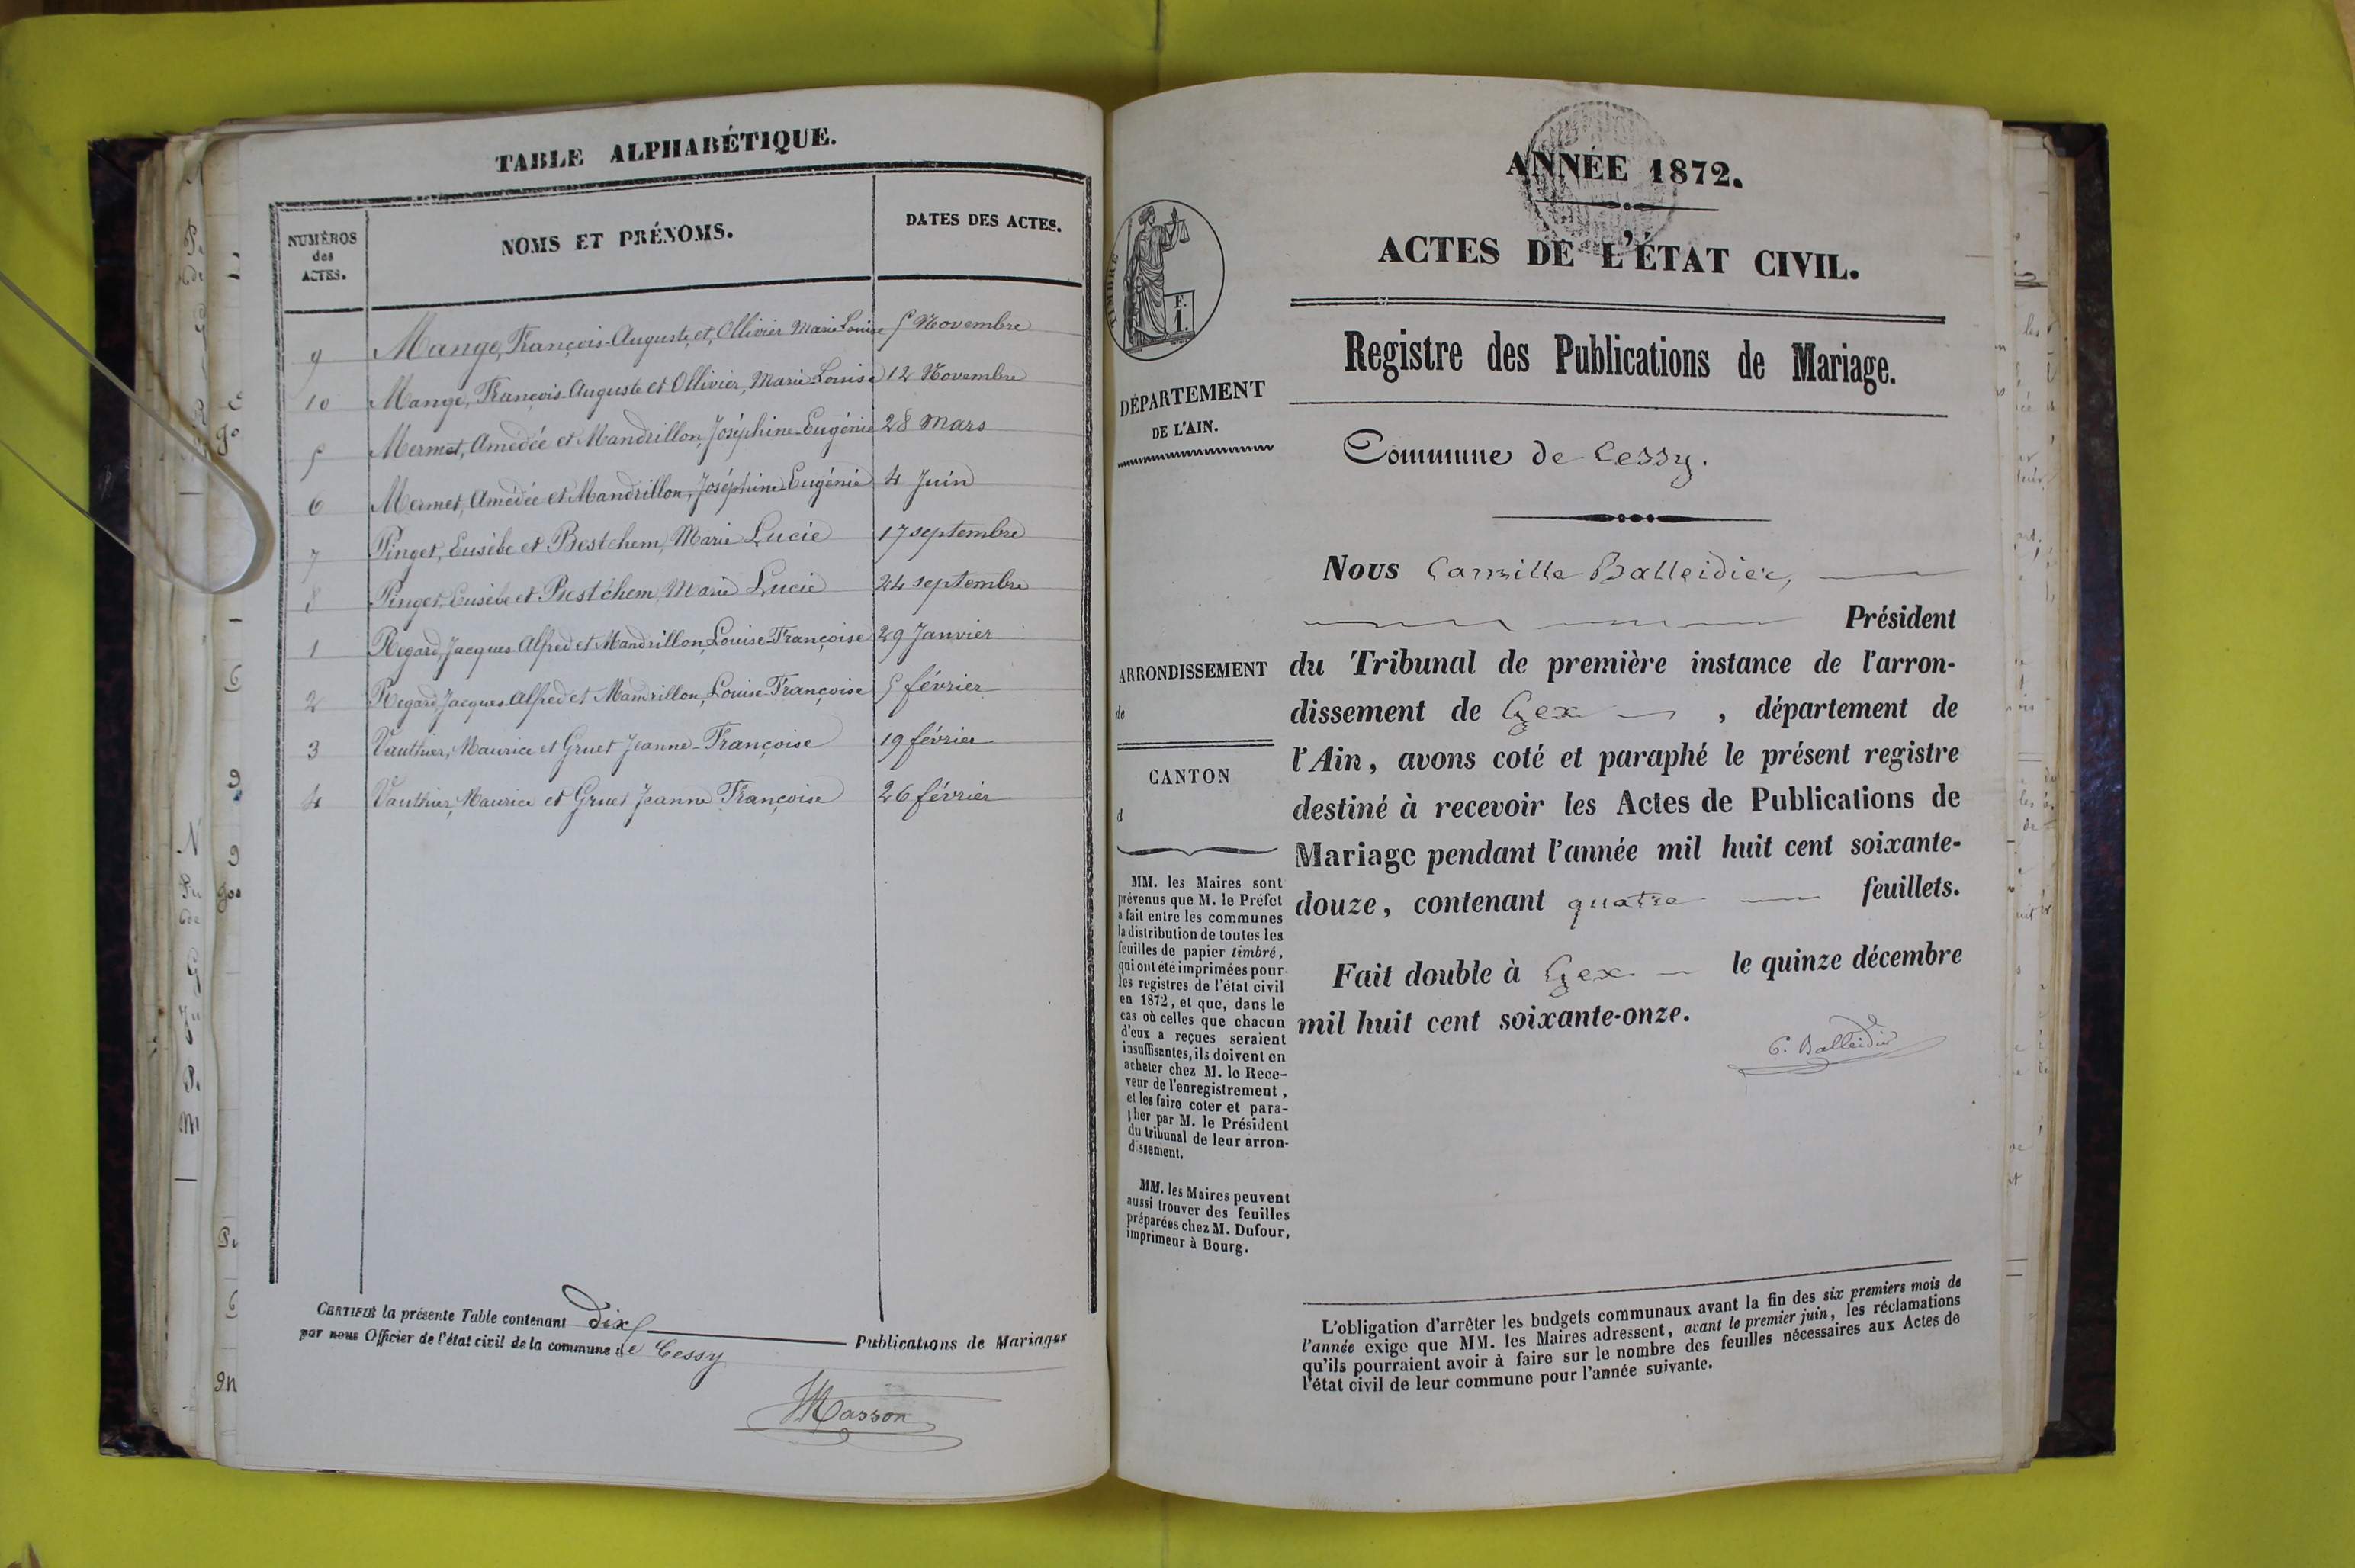 TABLE ALPHABÉTIQUE.
NUMÉROS
des
ACTES.
NOMS ET PRÉNOMS.
DATES DES ACTES.
9 Mange, François-Auguste, et, Ollivier Marie Louise 5 Novembre
10 Mange, François-Auguste et Ollivier, Marie-Louise 12 Novembre
5 Mermet, Amédée et Mandrillon, Joséphine-Eugénie 28 Mars
6 Mermet, Amédée et Mandrillon, Joséphine-Eugénie 4 Juin
7 Pinget, Eusèbe et Bestchem, Marie Lucie 17 septembre
8 Pinget, Eusèbe et Bestchem, Marie Lucie 24 septembre
1 Regard, Jacques-Alfred et Mandrillon, Louise-Françoise 29 Janvier
2 Regard, Jacques-Alfred et Mandrillon, Louise-Françoise 5 février
3 Vauthier, Maurice et Gruet Jeanne-Françoise 19 février
4 Vauthier, Maurice et Gruet Jeanne Françoise 26 février
CERTIFIÉ la présente Table contenant dix Publications de Mariages
par nous Officier de l'état civil de la commune de Cessy
Masson
ANNÉE 1872.
ACTES DE L'ÉTAT CIVIL.
Registre des Publications de Mariage.
TIMBRE
F.
I.
DÉPARTEMENT
DE L'AIN.
ARRONDISSEMENT
de
CANTON
d
MM. les Maires sont
prévenus que M. le Préfet
a fait entre les communes
la distribution de toutes les
feuilles de papier timbré,
qui ont été imprimées pour
les registres de l'état civil
en 1872, et que, dans le
cas où celles que chacun
d'eux a reçues seraient
insuffisantes, ils doivent en
acheter chez M. le Rece-
veur de l'enregistrement,
et les faire coter et para-
pher par M. le Président
du tribunal de leur arron-
dissement.
MM. les Maires peuvent
aussi trouver des feuilles
préparées chez M. Dufour,
imprimeur à Bourg.
Commune de Cessy.
Nous Camille Balleidier,
Président
du Tribunal de première instance de l'arron-
dissement de Gex, département de
l'Ain, avons coté et paraphé le présent registre
destiné à recevoir les Actes de Publications de
Mariage pendant l'année mil huit cent soixante-
douze, contenant quatre feuillets.
Fait double à Gex le quinze décembre
mil huit cent soixante-onze.
C. Balleidier
L'obligation d'arrêter les budgets communaux avant la fin des six premiers mois de
l'année exige que MM. les Maires adressent, avant le premier juin, les réclamations
qu'ils pourraient avoir à faire sur le nombre des feuilles nécessaires aux Actes de
l'état civil de leur commune pour l'année suivante.